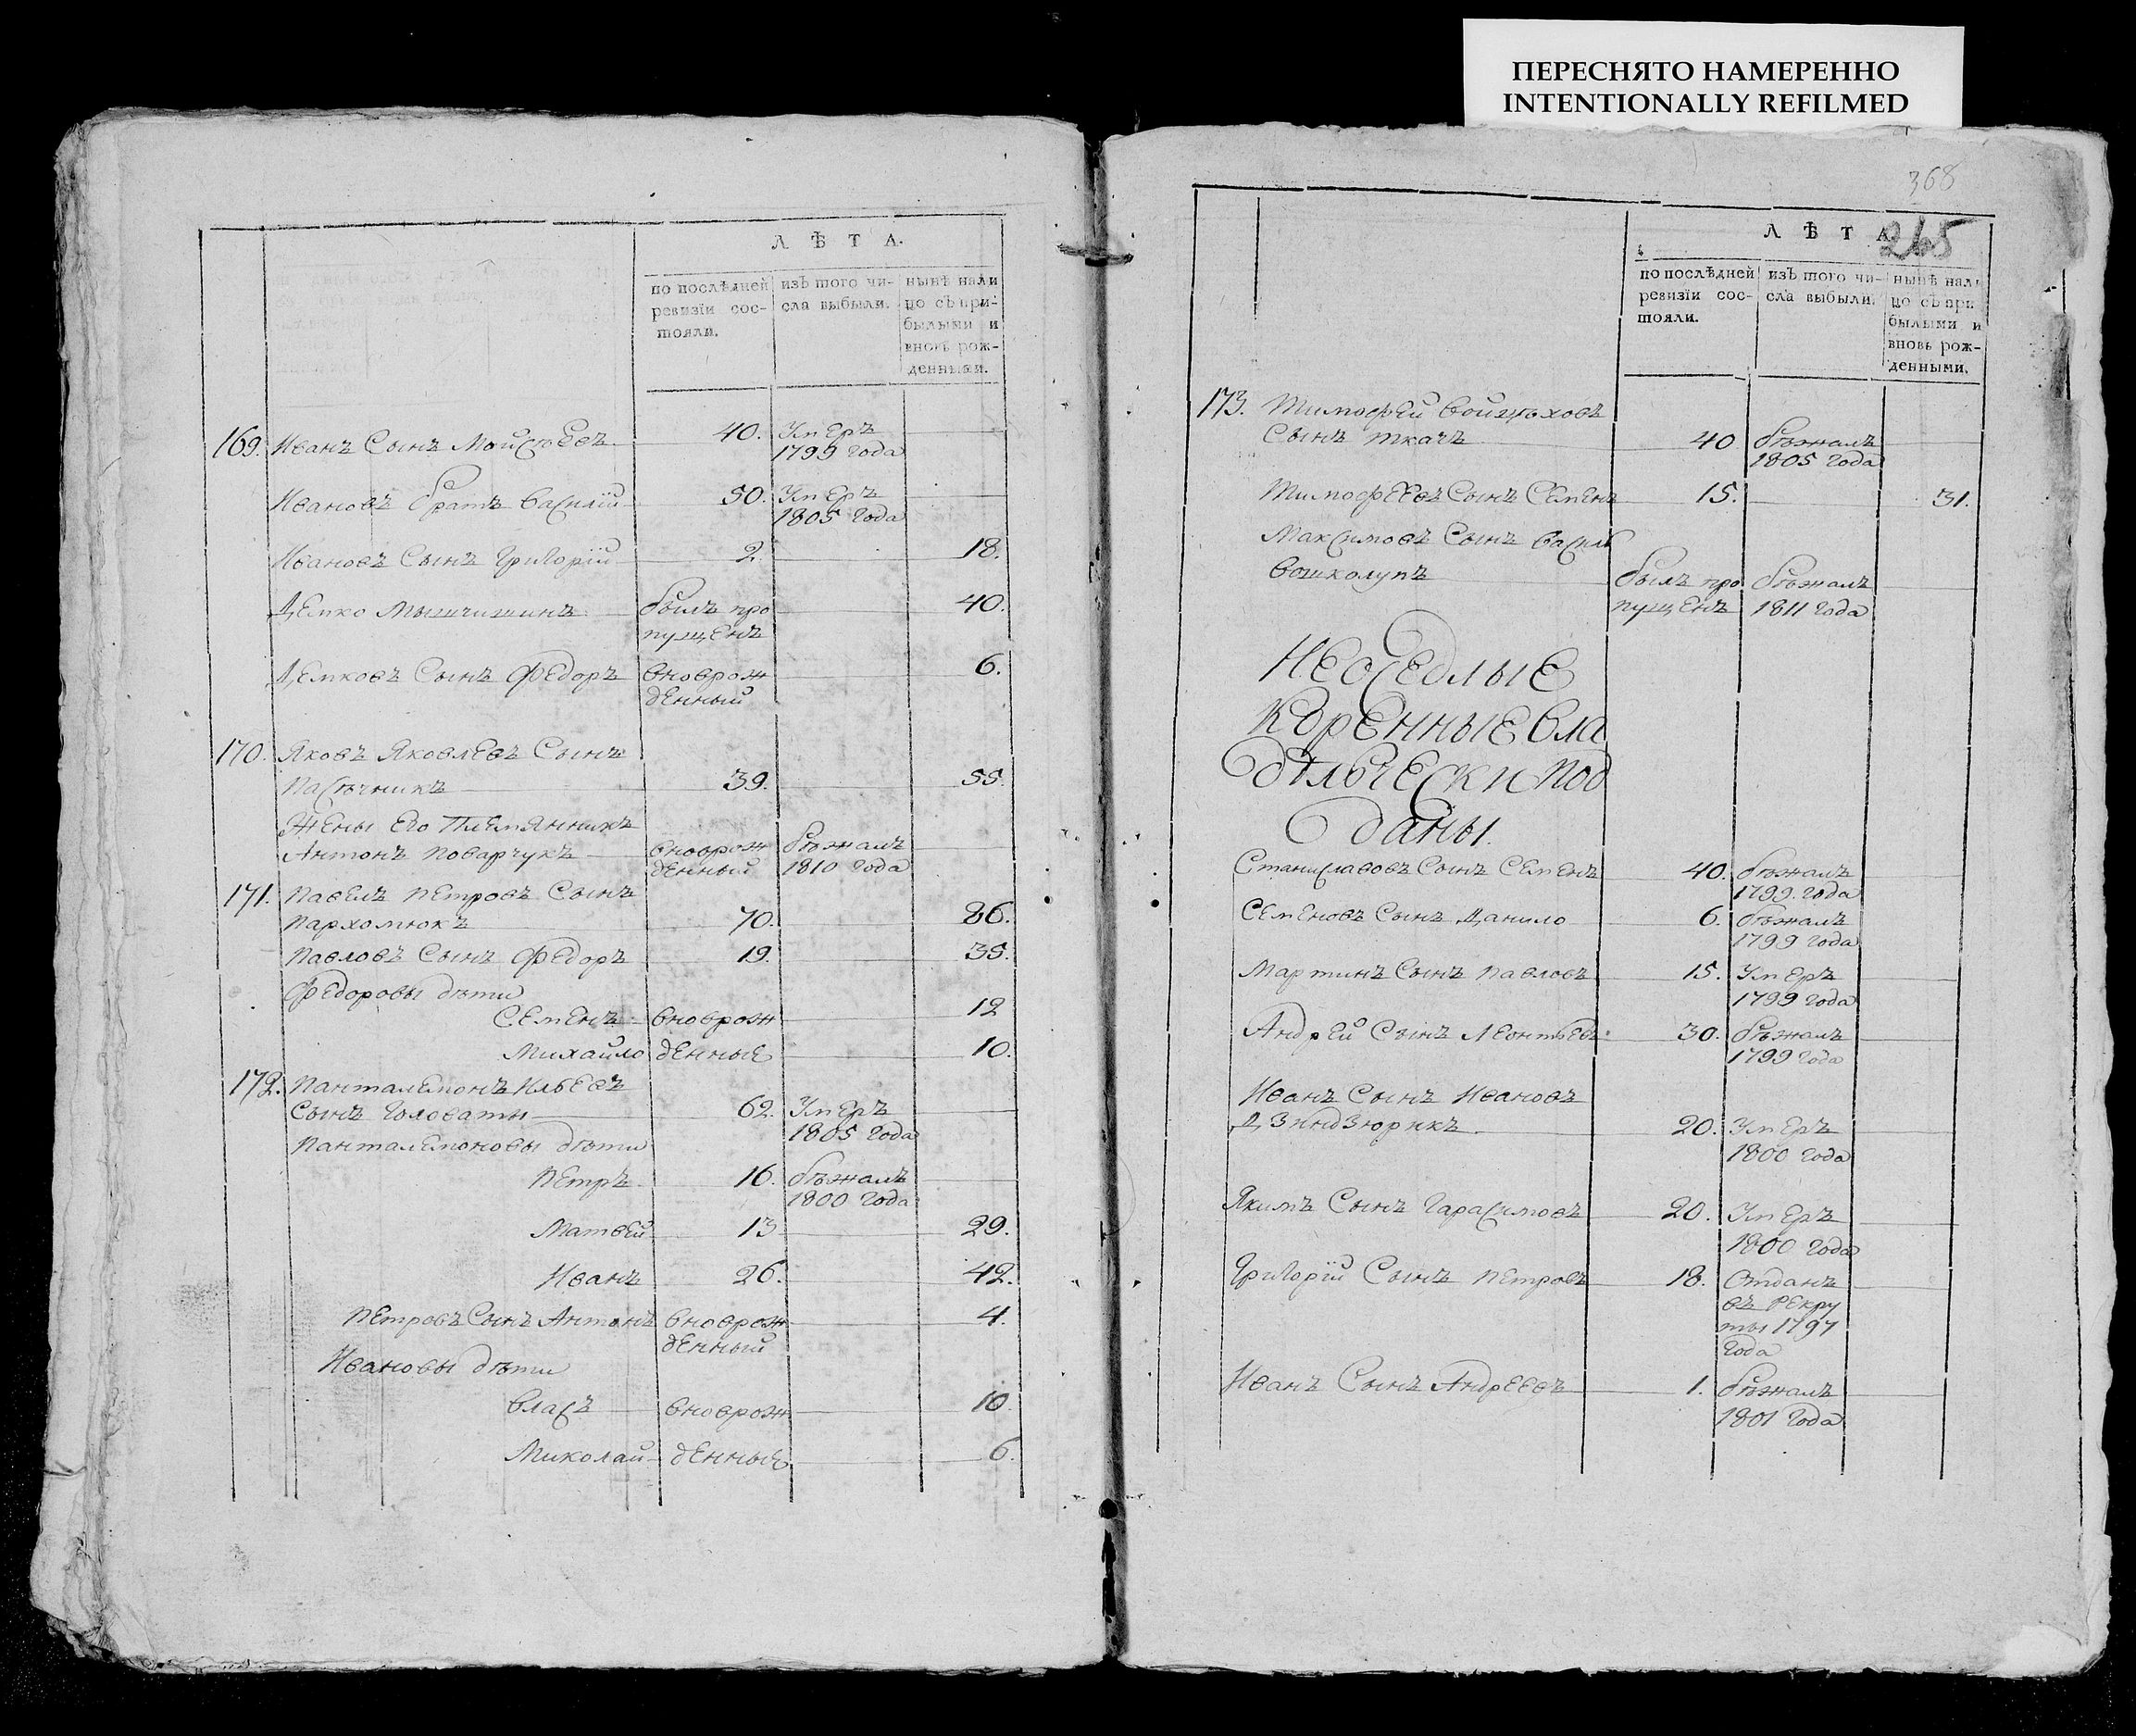 ПЕРЕСНЯТО НАМЕРЕННО
INTENTIONALLY REFILMED
Л Ѣ Т А.
по послѣдней ревизіи сос-тояли.
изъ того чи-сла выбыли.
нынѣ нали цо съ при-былыми и вновь рож-денными.
169. Иванъ Сынъ Мойсѣевъ 40. Умеръ
1799 года
Ивановъ братъ Василій 50. Умеръ
1805 года
Ивановъ Сынъ Григорій 2. 18.
Демко Мышчишинъ былъ про 40.
пущенъ
Демковъ Сынъ Федоръ вноврож 6.
денный
170. Яковъ Яковлевъ Сынъ
Пасѣчникъ 39. 55.
Жены Его Племянникъ
Антонъ Поварчукъ вноврож бѣжалъ
денный 1810 года
171. Павелъ Петровъ Сынъ
Пархомюкъ 70. 86.
Павловъ Сынъ Федоръ 19. 35.
Федоровы дѣти
Семенъ вноврож 12
Михайло денные 10.
172. Панталемонъ Ильевъ
Сынъ Головаты 62. Умеръ
1805 года
Панталемоновы дѣти
Петръ 16. бѣжалъ
1800 года
Матвей 13 29.
Иванъ 26. 42.
Петровъ Сынъ Антонъ вноврож 4.
денный
Ивановы дѣти
Власъ вноврож 10.
Миколай денные 6.
368
Л Ѣ Т А
265
по послѣдней ревизіи сос-тояли.
изъ того чи-сла выбыли.
нынѣ нали цо съ при былыми и вновь рож-денными.
173. Тимофей Войцѣховъ
Сынъ Ткачъ 40 бѣжалъ
1805 года
Тимофеевъ Сынъ Семенъ 15. 31.
Максимовъ Сынъ Василь
Вошколупъ былъ про бѣжалъ
пущенъ 1811 года
Неоседлые
коренные вла
дѣльчески под
даны.
Станиславовъ Сынъ Семенъ 40. бѣжалъ
1799. года
Семеновъ Сынъ Данило 6. бѣжалъ
1799 года
Мартинъ Сынъ Павловъ 15. Умеръ
1799 года
Андрей Сынъ Леонтьевъ 30. бѣжалъ
1799 года
Иванъ Сынъ Ивановъ
Дзиндзюрикъ 20. Умеръ
1800 года
Якимъ Сынъ Гарасимовъ 20. Умеръ
1800 года
Григорій Сынъ Петровъ 18. Отданъ
въ рекру
ты 1797
года
Иванъ Сынъ Андреевъ 1. бѣжалъ
1801 года